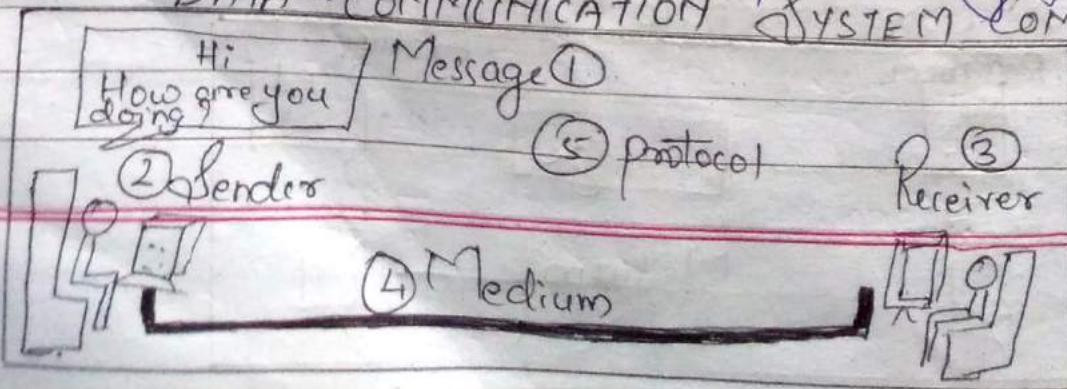 COMMUNICATION SYSTEM
Hi
How are you
doing?
Message ①
⑤ protocol
② Sender
③
Receiver
④ Medium